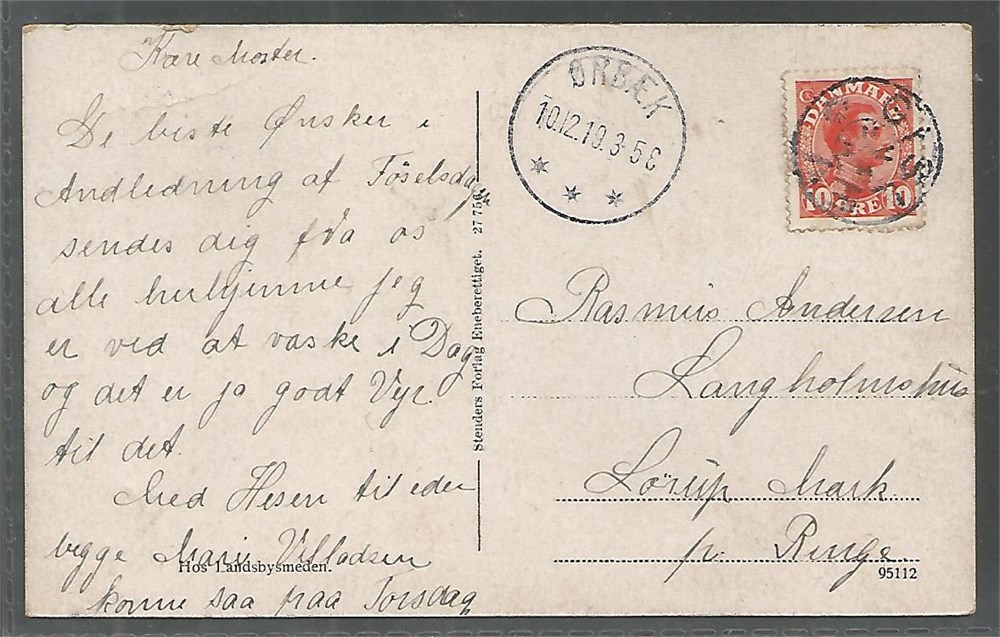 Kære Moster.
De biste Ønsker i
Andledning af Föselsdag
sendes dig fra os
alle herhjemme jeg
er ved at vaske i Dag
og det er jo godt Vejr
til det.
Med Hesen til eder
begge Marie Villadsen
komme saa paa Torsdag
Hos Landsbysmeden.
Stenders Forlag Eneberettiget. 27 756
ØRBÆK
10.12.19.3-5E
DANMARK
10 ØRE 10
Rasmus Andersen
Langholmshus
Lörup Mark
pr. Ringe.
95112